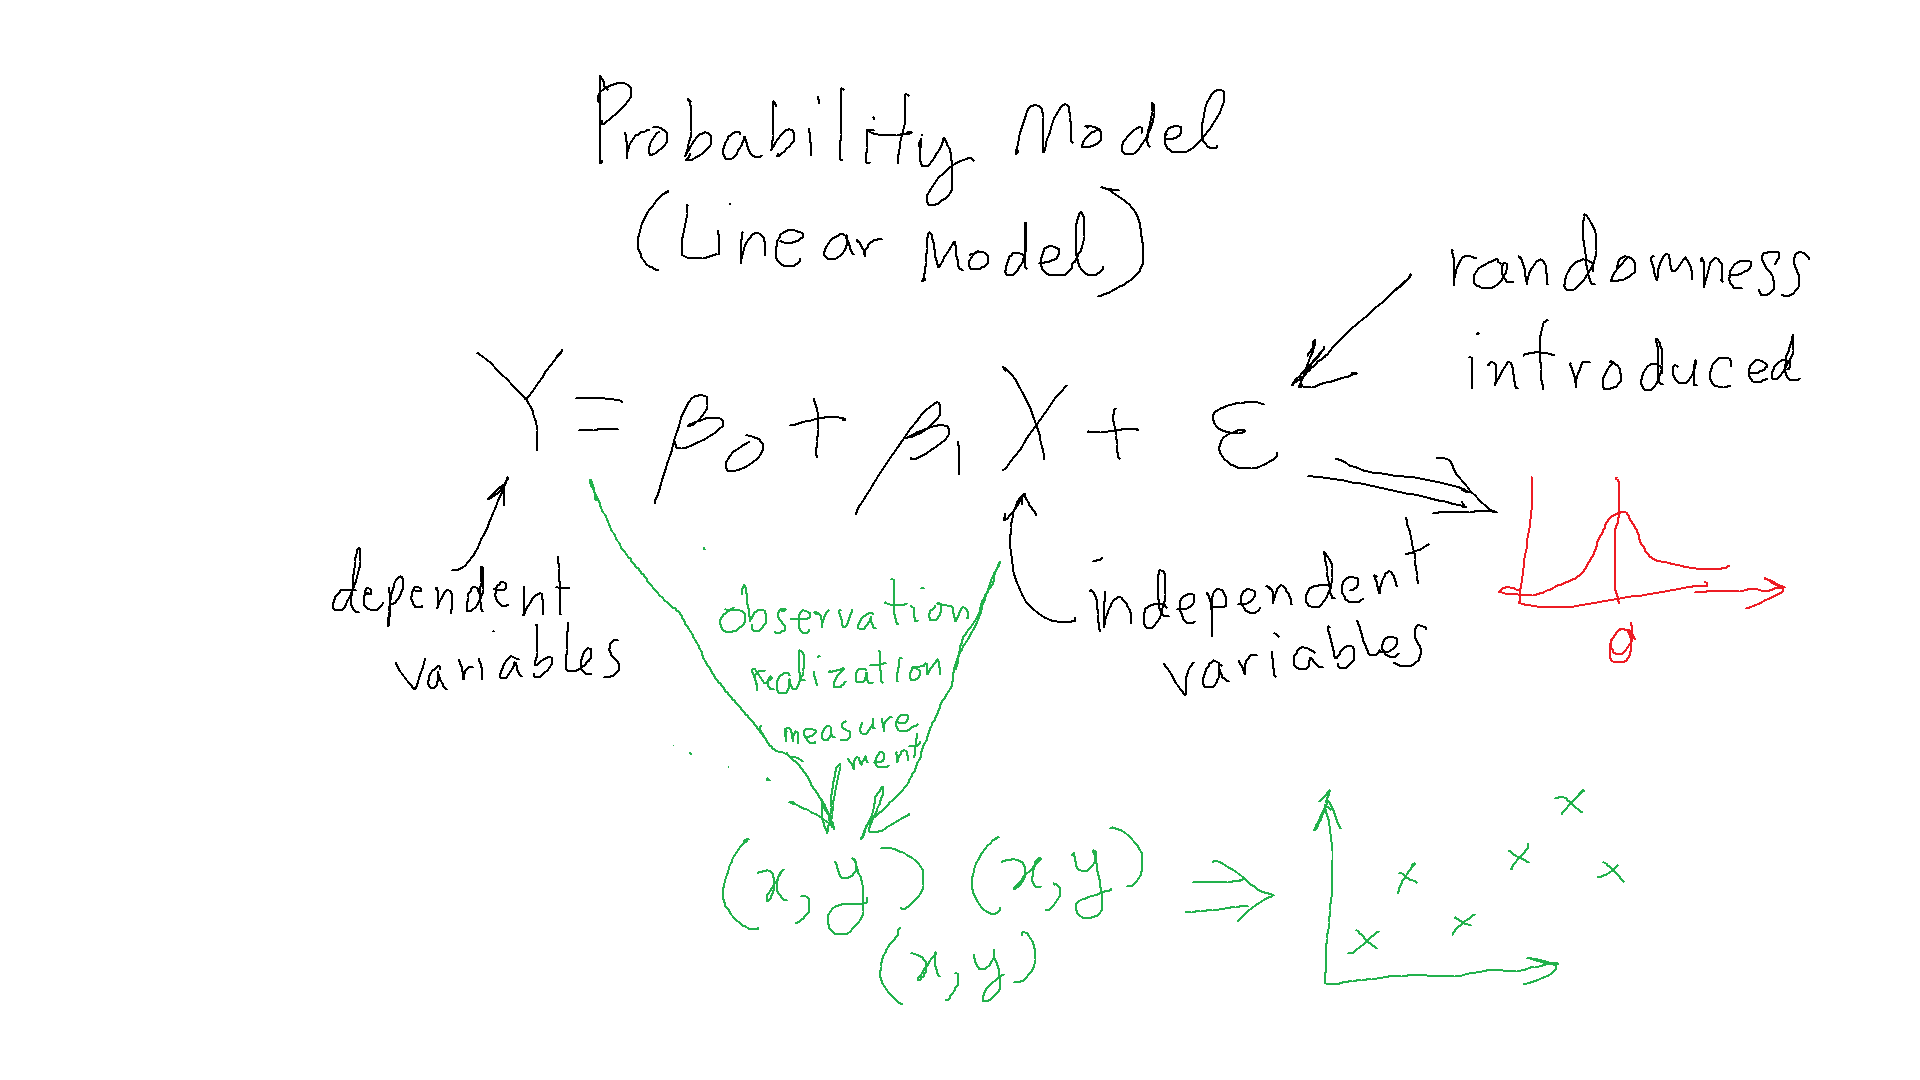 Probability Model
(Linear Model)
randomness
introduced
Y = β₀ + β₁ X + ε
dependent
variables
independent
variables
observation
realization
measure
ment
0
(x, y) (x, y)
(x, y)